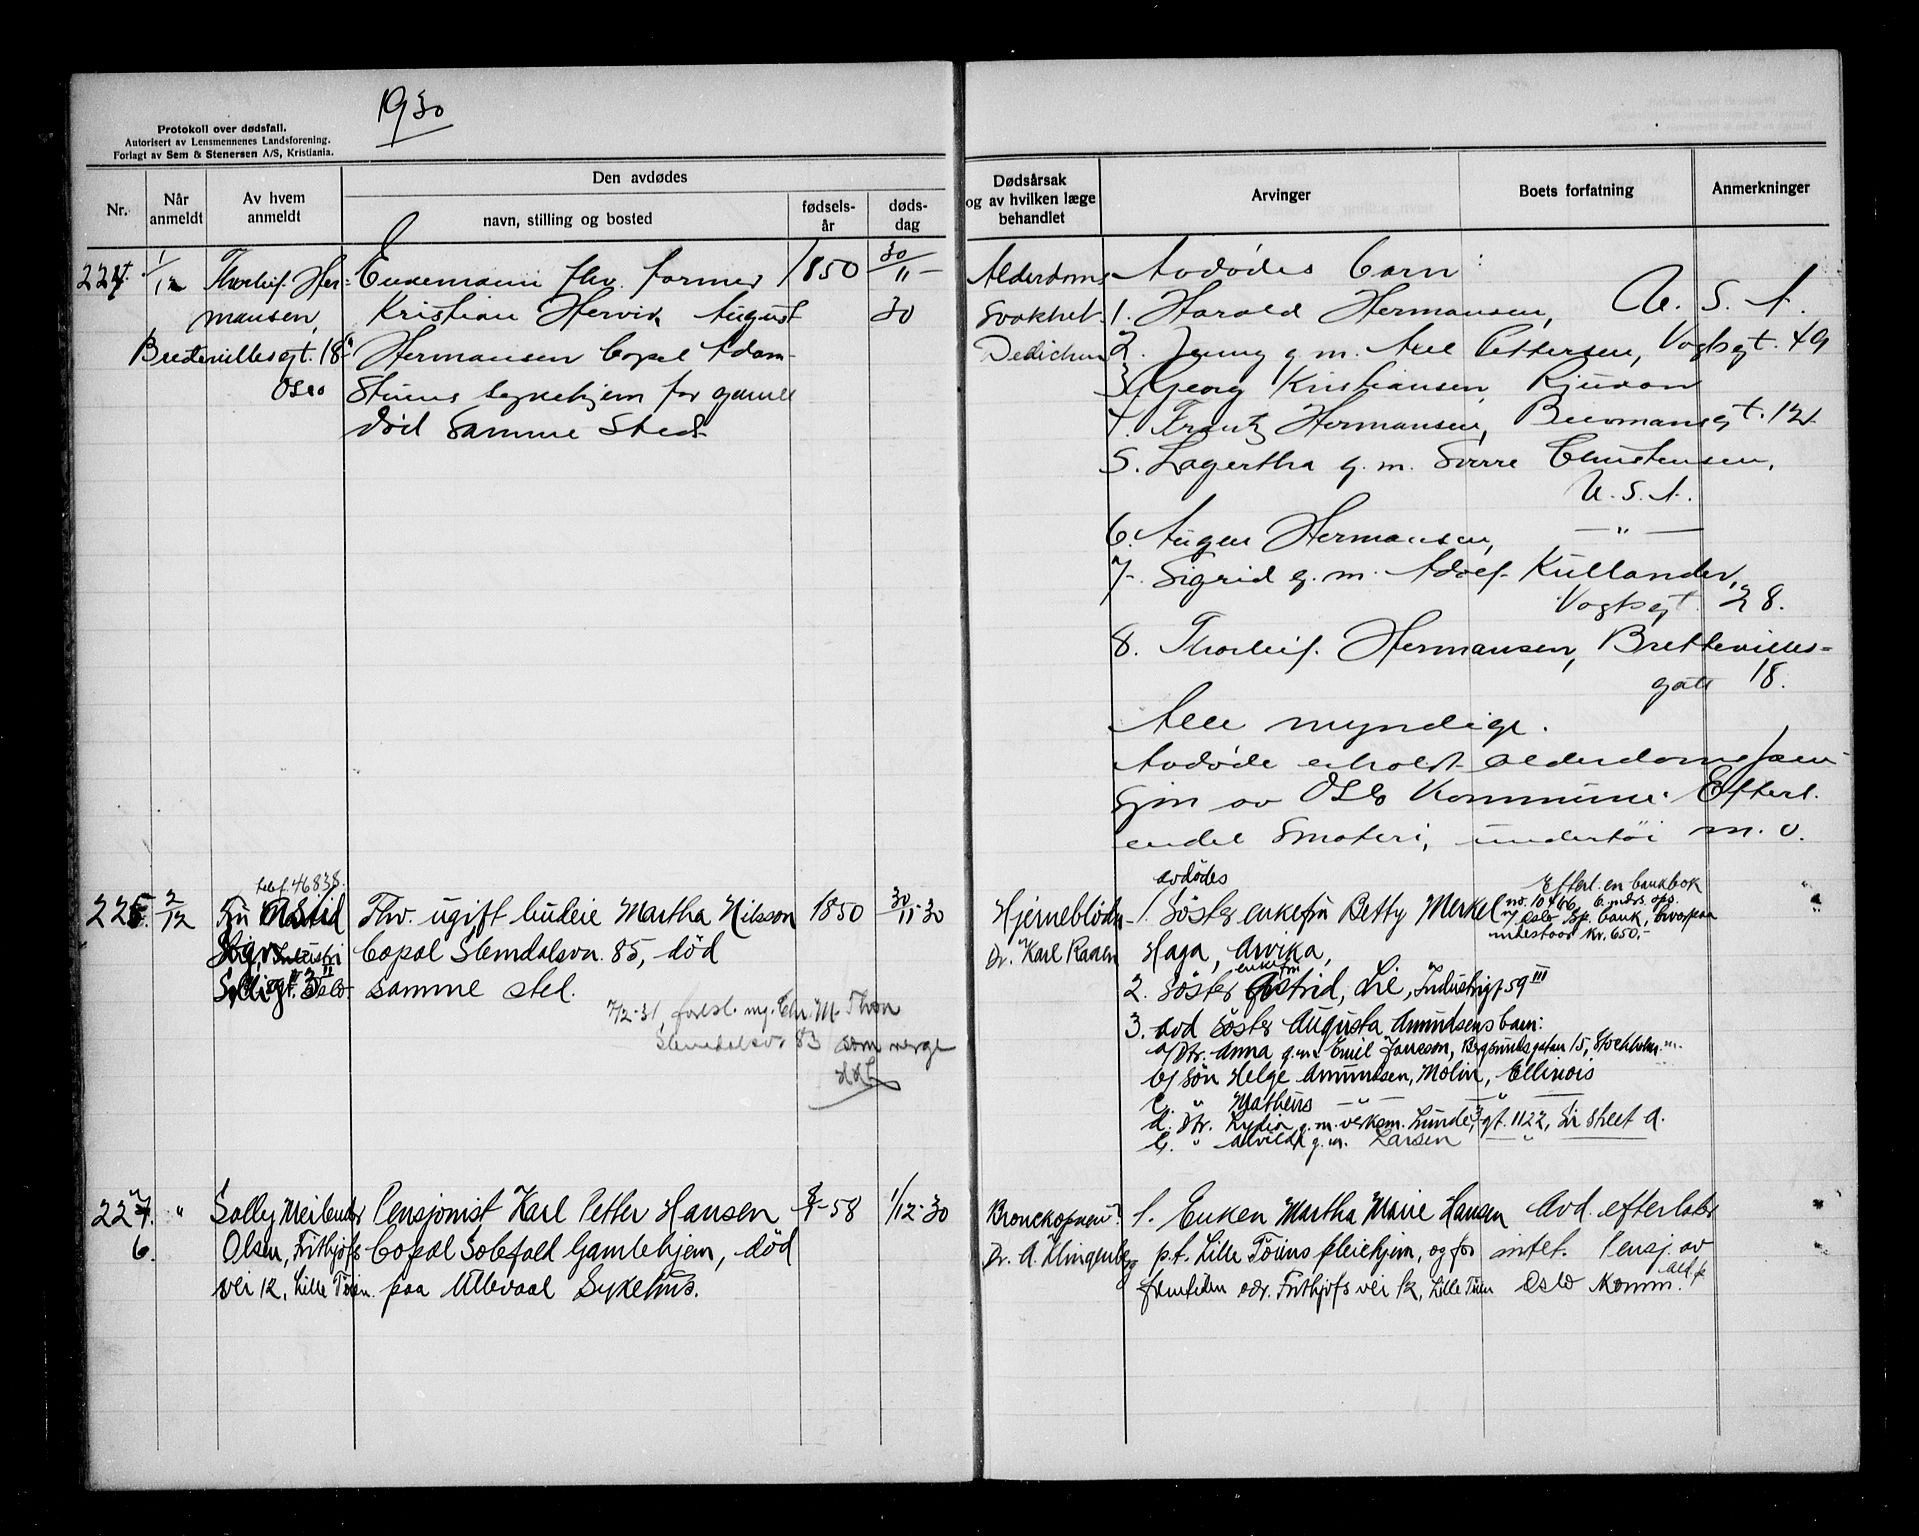 1930
Protokoll over dødsfall.
Autorisert av Lensmennenes Landsforening.
Forlagt av Sem & Stenersen A/S, Kristiania.
Nr.
Når anmeldt
Av hvem anmeldt
Den avdødes
navn, stilling og bosted
fødsels-år
døds-dag
Dødsårsak og av hvilken læge behandlet
Arvinger
Boets forfatning
Anmerkninger
224. 1/12 Thorleif Her-
mansen,
Brettevillesgt. 18
Oslo
Enkemann fhv. former 1850 30/11-
Kristian Hervik August 30
Hermansen bopæl Adam-
Stuens sykehjem for gamle
død samme sted
Alderdoms
svakhet
Dedichen
Avdødes barn:
1. Harald Hermansen, U.S.A.
2. Jenny g.m. Axel Pettersen, Vogtsgt. 49
3. Georg Kristiansen, Rjukan
4. Frantz Hermansen, gt. 12
5. Lagertha g.m. Sverre Christensen,
U.S.A.
6. Hermansen, — " —
7. Sigrid g.m. Adolf Kullander,
Vogtsgt. 28.
8. Thorleif Hermansen, Brettevilles-
gate 18.
Alle myndige.
Avdøde erholdt alderdomspen-
sjon av Oslo Kommune. Efterl.
endel småteri, undertøi m.v.
telef. 46838.
225. 2/12 Fru Astrid
Oslo
Fhv. ugift huseie Martha Nilsson 1850 30/11-30
bopæl Slemdalsvn. 85, død
samme sted.
7/2-31, foresl. Chr. M. Thon
Slemdalsv. 83 som verge
Hjerneblødn.
Dr. Karl Raaen
avdødes
1. Søster enkefru Betty Merkel
Haga, Arvika,
enkefru
2. Søster Astrid, Lie, Industrigt 59 III
3. avd søster Augusta Amundsens barn:
a/ Dtr. Anna g.m. Emil Jansson, Bergsundsgatan 15, Stockholm
b/ Søn Helge Amundsen, Molin, Ellinois
c. " Matheus — " — — " —
d. Dtr. Lydia g.m. verksm. Lunde, gt. 1122, street A.
e. " Alvilde g.m. Larsen — " —
Efterl. en bankbok
no. 10466, 6 mdrs. ops.
Oslo Sp. bank, hvorpaa
indestaar kr. 650,-
227. "
6.
Solly Meilender
Olsen, Frithjofs
vei 12, Lille Tøien.
Pensjonist Karl Petter Hansen -58 1/12-30
bopæl Solefald Gamlehjem, død
paa Ullevaal Sykehus.
Bronchopneu
Dr. A. Klingenberg
1. Enken Martha Marie Hansen
p.t. Lille Tøiens pleiehjem, og for
fremtiden adr. Frithjofs vei 12, Lille Tøien
Avd. efterlater
intet. Pensj. av
Oslo Komm. ald.p.